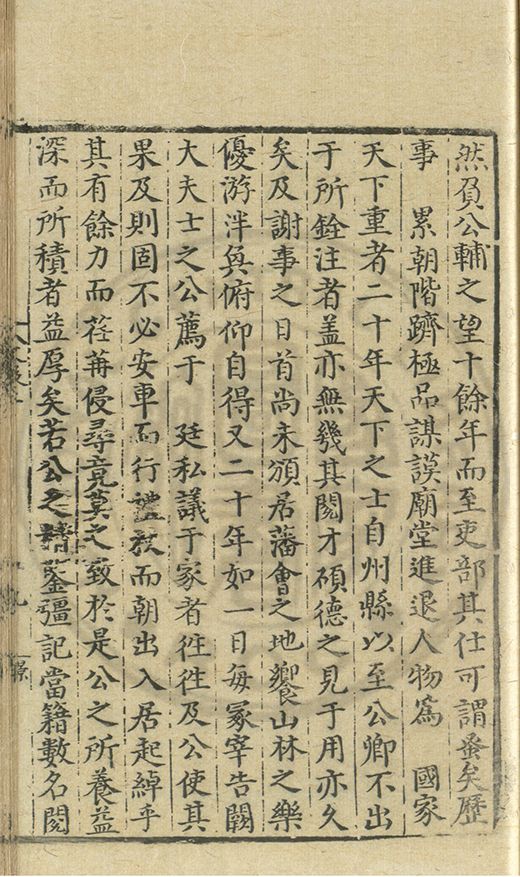 然負公輔之望十餘年而至吏部其仕可謂蚤矣歷
事　累朝階躋極品謀謨廟堂進退人物為　國家
天下重者二十年天下之士自州縣以至公卿不出
于所銓注者盖亦無幾其閎才碩德之見于用亦久
矣及謝事之日首尚未頒居藩會之地饗山林之樂
優游泮奐俯仰自得又二十年如一日每冢宰告闕
大夫士之公薦于　廷私議于家者徃徃及公使其
果及則固不必安車而行禮於而朝出入居起綽乎
其有餘力而荏苒侵尋竟莫之致於是公之所養益
深而所積者益厚矣若公之精鉴彊記當籍數名閥